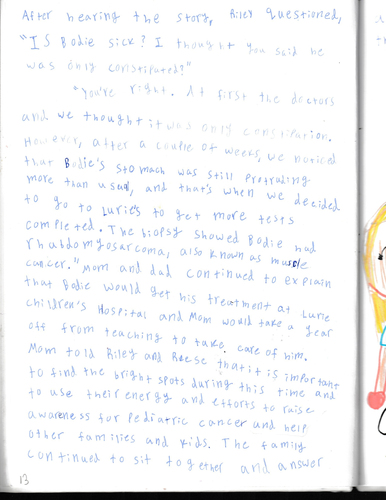 After hearing the story, Riley questioned,
"Is Bodie sick? I thought you said he
was only constipated?"
"You're right. At first the doctors
and we thought it was only constipation.
However, after a couple of weeks, we noticed
that Bodie's stomach was still protruding
more than usual, and that's when we decided
to go to Lurie's to get more tests
completed. The biopsy showed Bodie had
rhabdomyosarcoma, also known as muscle
cancer." Mom and dad continued to explain
that Bodie would get his treatment at Lurie
Children's Hospital and Mom would take a year
off from teaching to take care of him.
Mom told Riley and Reese that it is important
to find the bright spots during this time and
to use their energy and efforts to raise
awareness for pediatric cancer and help
other families and kids. The family
continued to sit together and answer
13